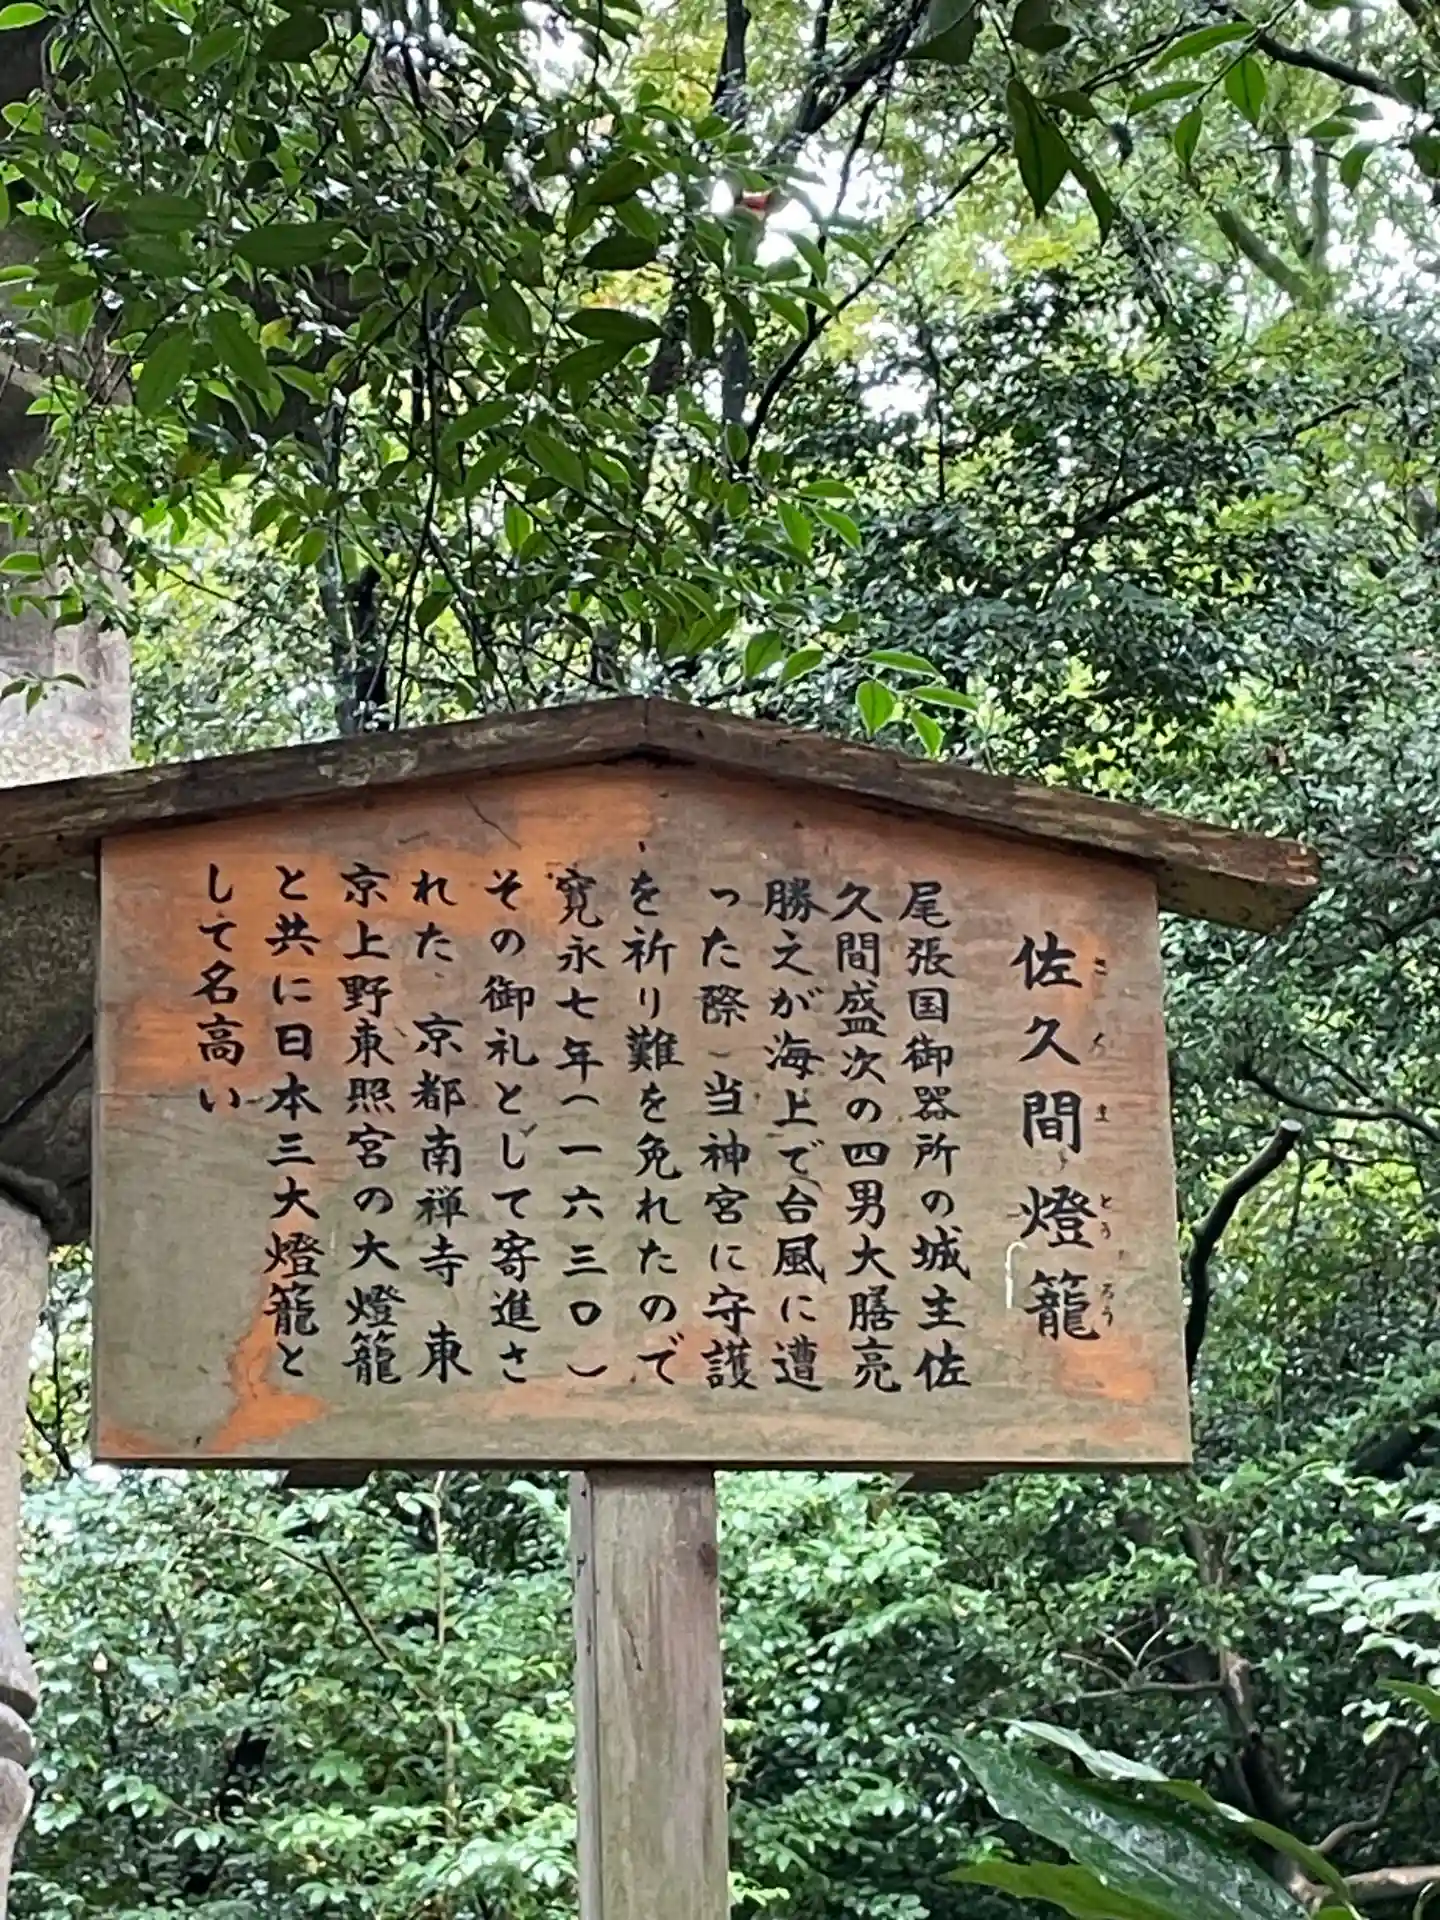 佐久間燈籠
さくまとうろう
尾張国御器所の城主佐
久間盛次の四男大膳亮
勝之が海上で台風に遭
った際、当神宮に守護
を祈り難を免れたので、
寛永七年(一六三〇)
その御礼として寄進さ
れた。京都南禅寺 東
京上野東照宮の大燈籠
と共に日本三大燈籠と
して名高い